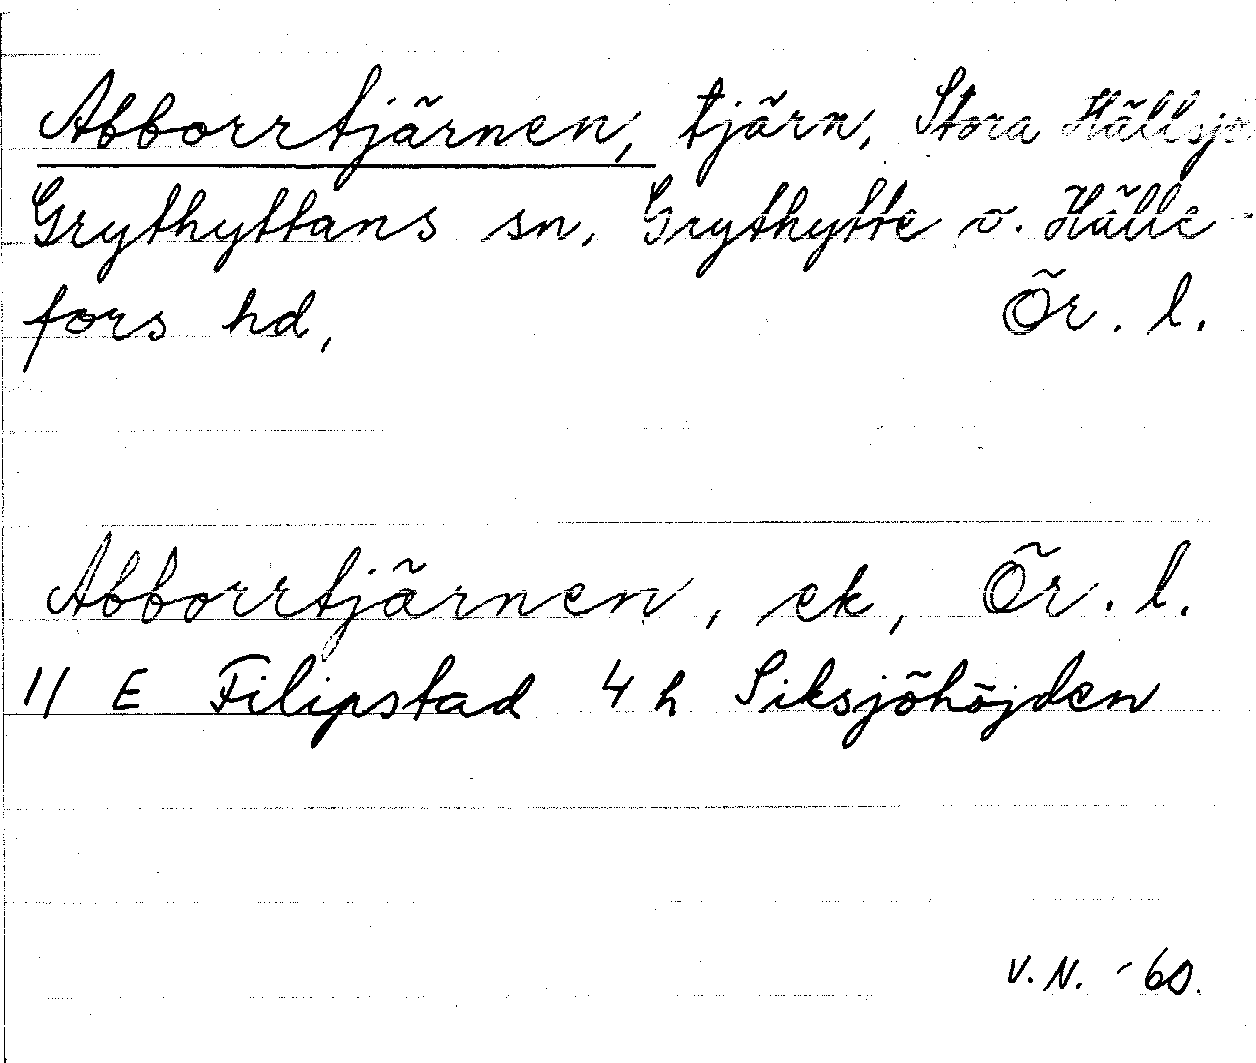 Abborrtjärnen, tjärn, Stora Hällsjö
Grythyttans sn, Grythytte o. Hälle-
fors hd, Ör. l.
Abborrtjärnen, ek, Ör. l.
11 E Filipstad 4 h Siksjöhöjden
V.N. -60.